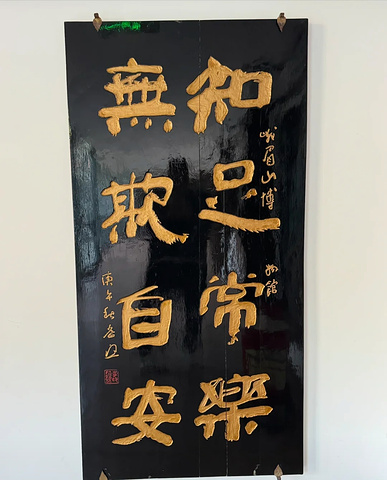 知足常樂
無欺自安
峨眉山博物館
庚午秋